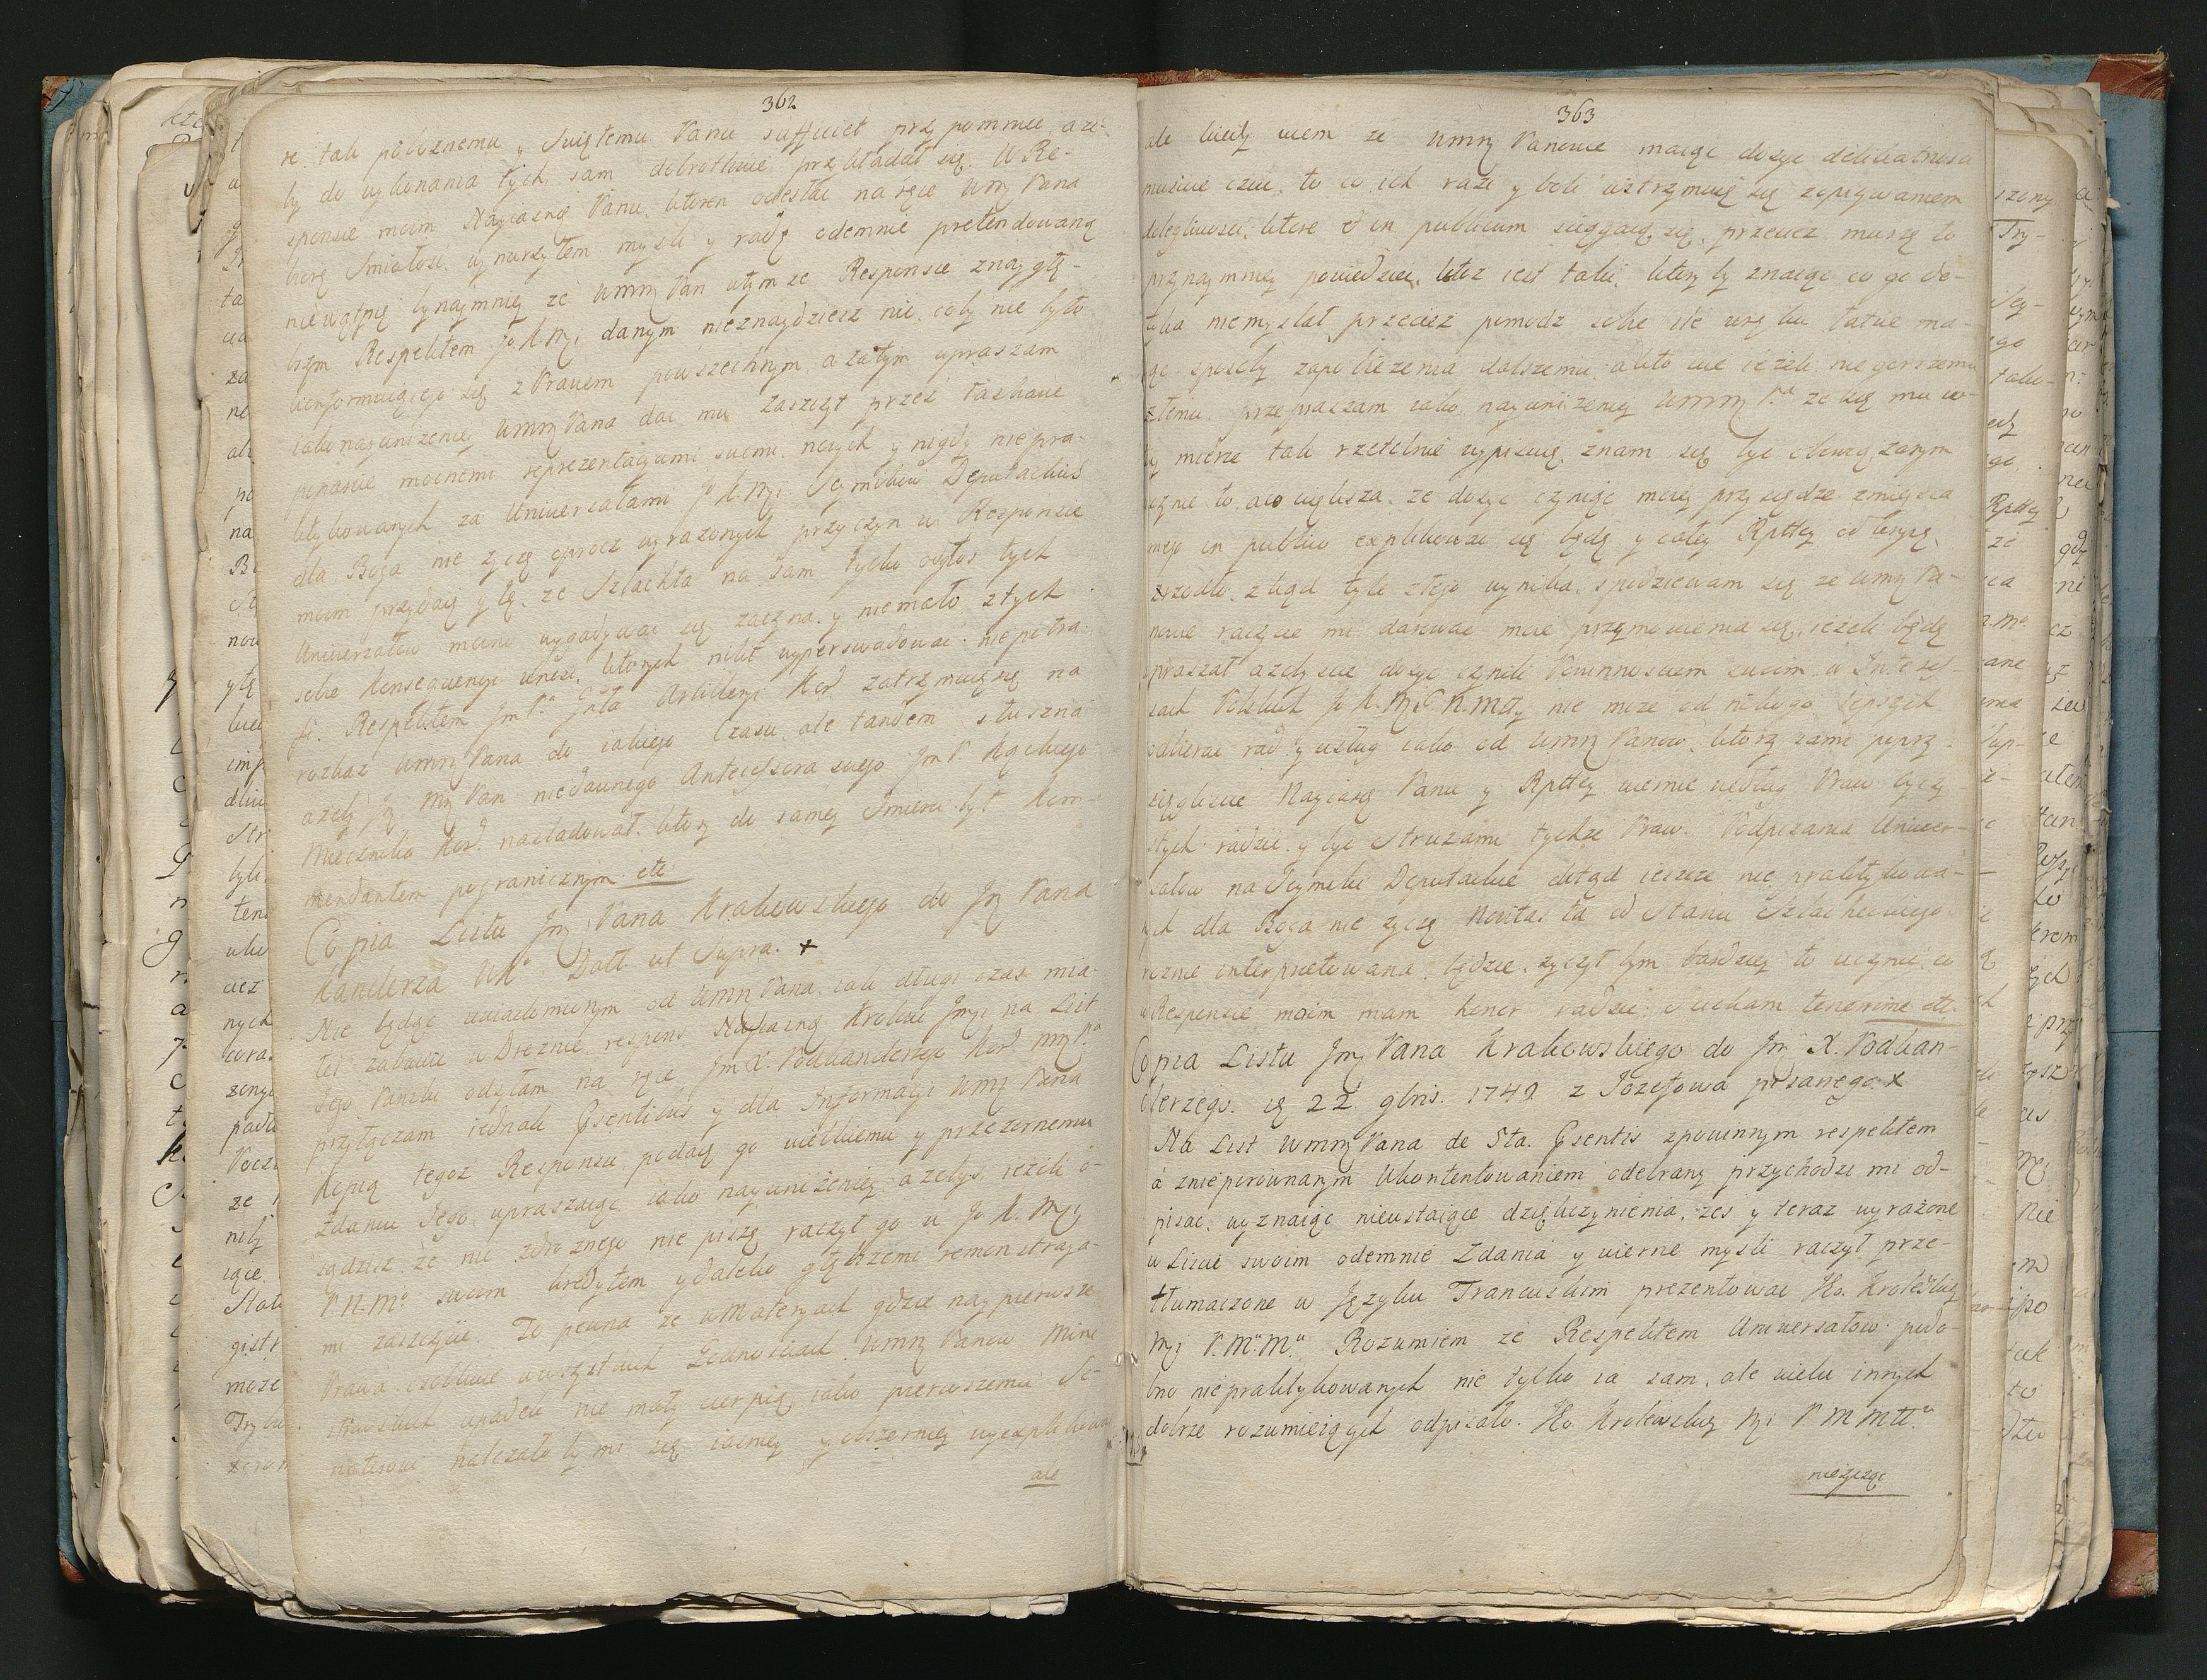 362
re tak pobożnemu y Swiętemu Panu sufficiet przypomniec aże-
by do wykonania tych sam dobrotliwie przykładał się. W Re-
sponsie moim Nayiasnię Panu, ktoren odesłac na ręce Wmę Pana
biorę Smiałosc, wyraziłem mysli y radę odemnie pretendowaną
niewątpię bynaymnię że Wmm Pan w tym że Responsie z naygłę-
bszym Respektem Jo K. Mci danym nieznaydziesz nic, coby nie było
konformuiącego się z Prawem powszechnym, a zatym upraszam
iako nayunizenię Wmm Pana dac mu zaszczyt przez łaskawe
ponowie mocnemi reprezentacyami swemi, nowych y nigdy niepra-
ktykowanych za Uniwersałami Jo K. Mci Seymikow Deputackich
dla Boga nie zyczę oprocz wyrażonych przyczyn w Responsie
moim przydaię y tę, że Szlachta na sam tylko ogłos tych
Uniwersałow mocno wygadywac się zaczyna, y niemało z tych
sobie konsequencyi wnosi, ktorych nikt wyperswadowac niepotra-
fi. Respektem Jm Pa Grła Artilleryi Kor. zatrzymuię się na
rozkaz Wmm Pana do iakiego czasu, ale tandem słuszna
ażeby Jm Mci Pan niedawnego Antecessora swego Jm P. Kąckiego
Miecznika Kor. nasladował, ktory do samey Smierci był Kom-
mendantem pogranicznym etc
Copia Listu Jm Pana Krakowskiego do Jm Pana
Kanclerza WKo Datt ut Supra. +
Nie będąc uwiadomionym od Wmm Pana iak długi czas mia-
łes zabawic w Dreznie, respons Nayiasnię Krolowi Jmci na List
Jego Panski odsyłam na ręce Jm X. Podkanclerzego Kor. mm Pa
przyłączam iednak Gsentibus y dla Informacyi Wmm Pana
kopią tegoż Responsu, podaię go wielkiemu y przezornemu
Zdaniu Jego, upraszaiąc iako nayunizenię, ażebys, ieżeli o-
sądzisz że nic zdrożnego nie piszę raczył go u Jo K. Mci
P. N. Mo swoim kredytem y daleko głębszemi remonstracya-
mi zaszczycic. To pewna że w Materyach gdzie naypierwsze
Prawa osobliwie w wszystkich Zacnosciach Wmm Panow Mini
strowskich upadek nie mały cierpią, iako pierwszemu Se-
natorowi należałoby mi się iasnię y obszernię wyexplikowac
ale
363
ale kiedy wiem że Wmm Panowie maiąc dosyc delikatnosci
musicie czuc, to co ich razi y boli wstrzymuię się z opisywaniem
dolegliwosci, ktore et in publicum sciągaią się, przeciez muszę to
przynaymnię powiedziec, ktoz iest taki, ktory by znaiąc co go do-
tyka niemyslał przeciez pomodz sobie iesli w ręku łatwe ma-
iąc sposoby zapobieżenia dalszemu, a kto wie ieżeli niegorszemu
złemu, przepraszam iako nayunizenię Wmm Pa że się mu w
tey mierze tak rzetelnie wypisuię, znam się byc obowiązanym
czynic to, a co większa, że dosyc czyniąc moiey przysiędze z mieysca
mego in publico explikowac się będę y całey Rpttey odkryię
źrzodło, z kąd tyle złego wynika, spodziewam się że Wmm Pa-
nowie raczycie mi darowac moie przymowienia się, ieżeli będę
upraszał ażebyscie dosyc czynili Powinnosciom swoim w Interes-
sach Polskich Jo K. Mci P. N. Mty nie może od nikogo lepszych
odbierac rad y usług iako od Wmm Panow, ktorzy sami poprzy-
sięgliscie Nayiasn Panu y Rpttey wiernie według Praw oyczy-
stych radzic y byc Strozami tychże Praw. Podpisania Uniwer-
sałow na Seymiki Deputackie dotąd ieszcze nie praktykowa-
nych dla Boga nie zyczę Novitas ta od Stanu Szlacheckiego
rożnie interpretowana będzie, życzył bym bardziey to uczynic, co
w Responsie moim mam honor radzic. Jncham tenerime etc
Copia Listu Jm Pana Krakowskiego do Jm X. Podkan-
clerzego ię 22 9bris. 1749 z Jozefowa pisanego x
Na List Wmm Pana de 5ta Gsentis z powinnym respektem
a z nieporownanym Ukontentowaniem odebrany przychodzi mi od-
pisac, wyznaiąc nieustaiące dziękczynienia, żes y teraz wyrażone
w Liscie swoim odemnie Zdania y wierne mysli raczył prze-
tłumaczone w Języku Francuskim prezentowac Ko Krolewskiey
Mci P. M. Mu Rozumiem że Respektem Uniwersałow podo-
bno niepraktykowanych nie tylko ia sam, ale wielu innych
dobrze rozumieiących odpisało. Ko Krolewskiey Mci P M Mttu
nieżyczę